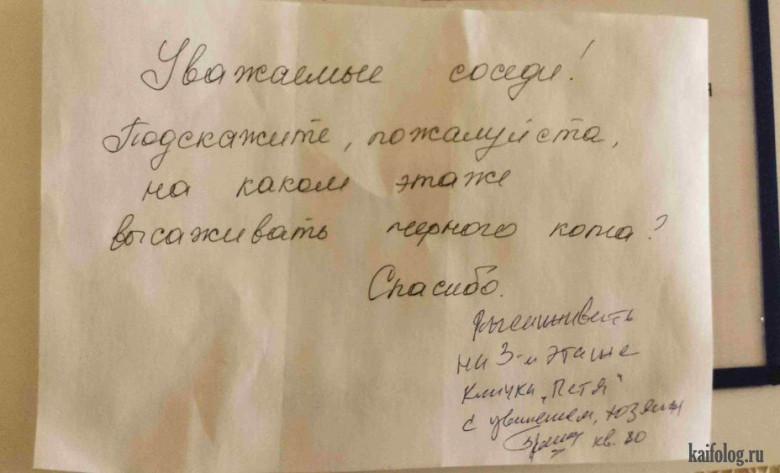 Уважаемые соседи!
Подскажите, пожалуйста,
на каком этаже
высаживать черного кота?
Спасибо.
Высаживать
на 3-м этаже
Кличка „Петя“
с уважением, хозяин
кв. 80
kaifolog.ru